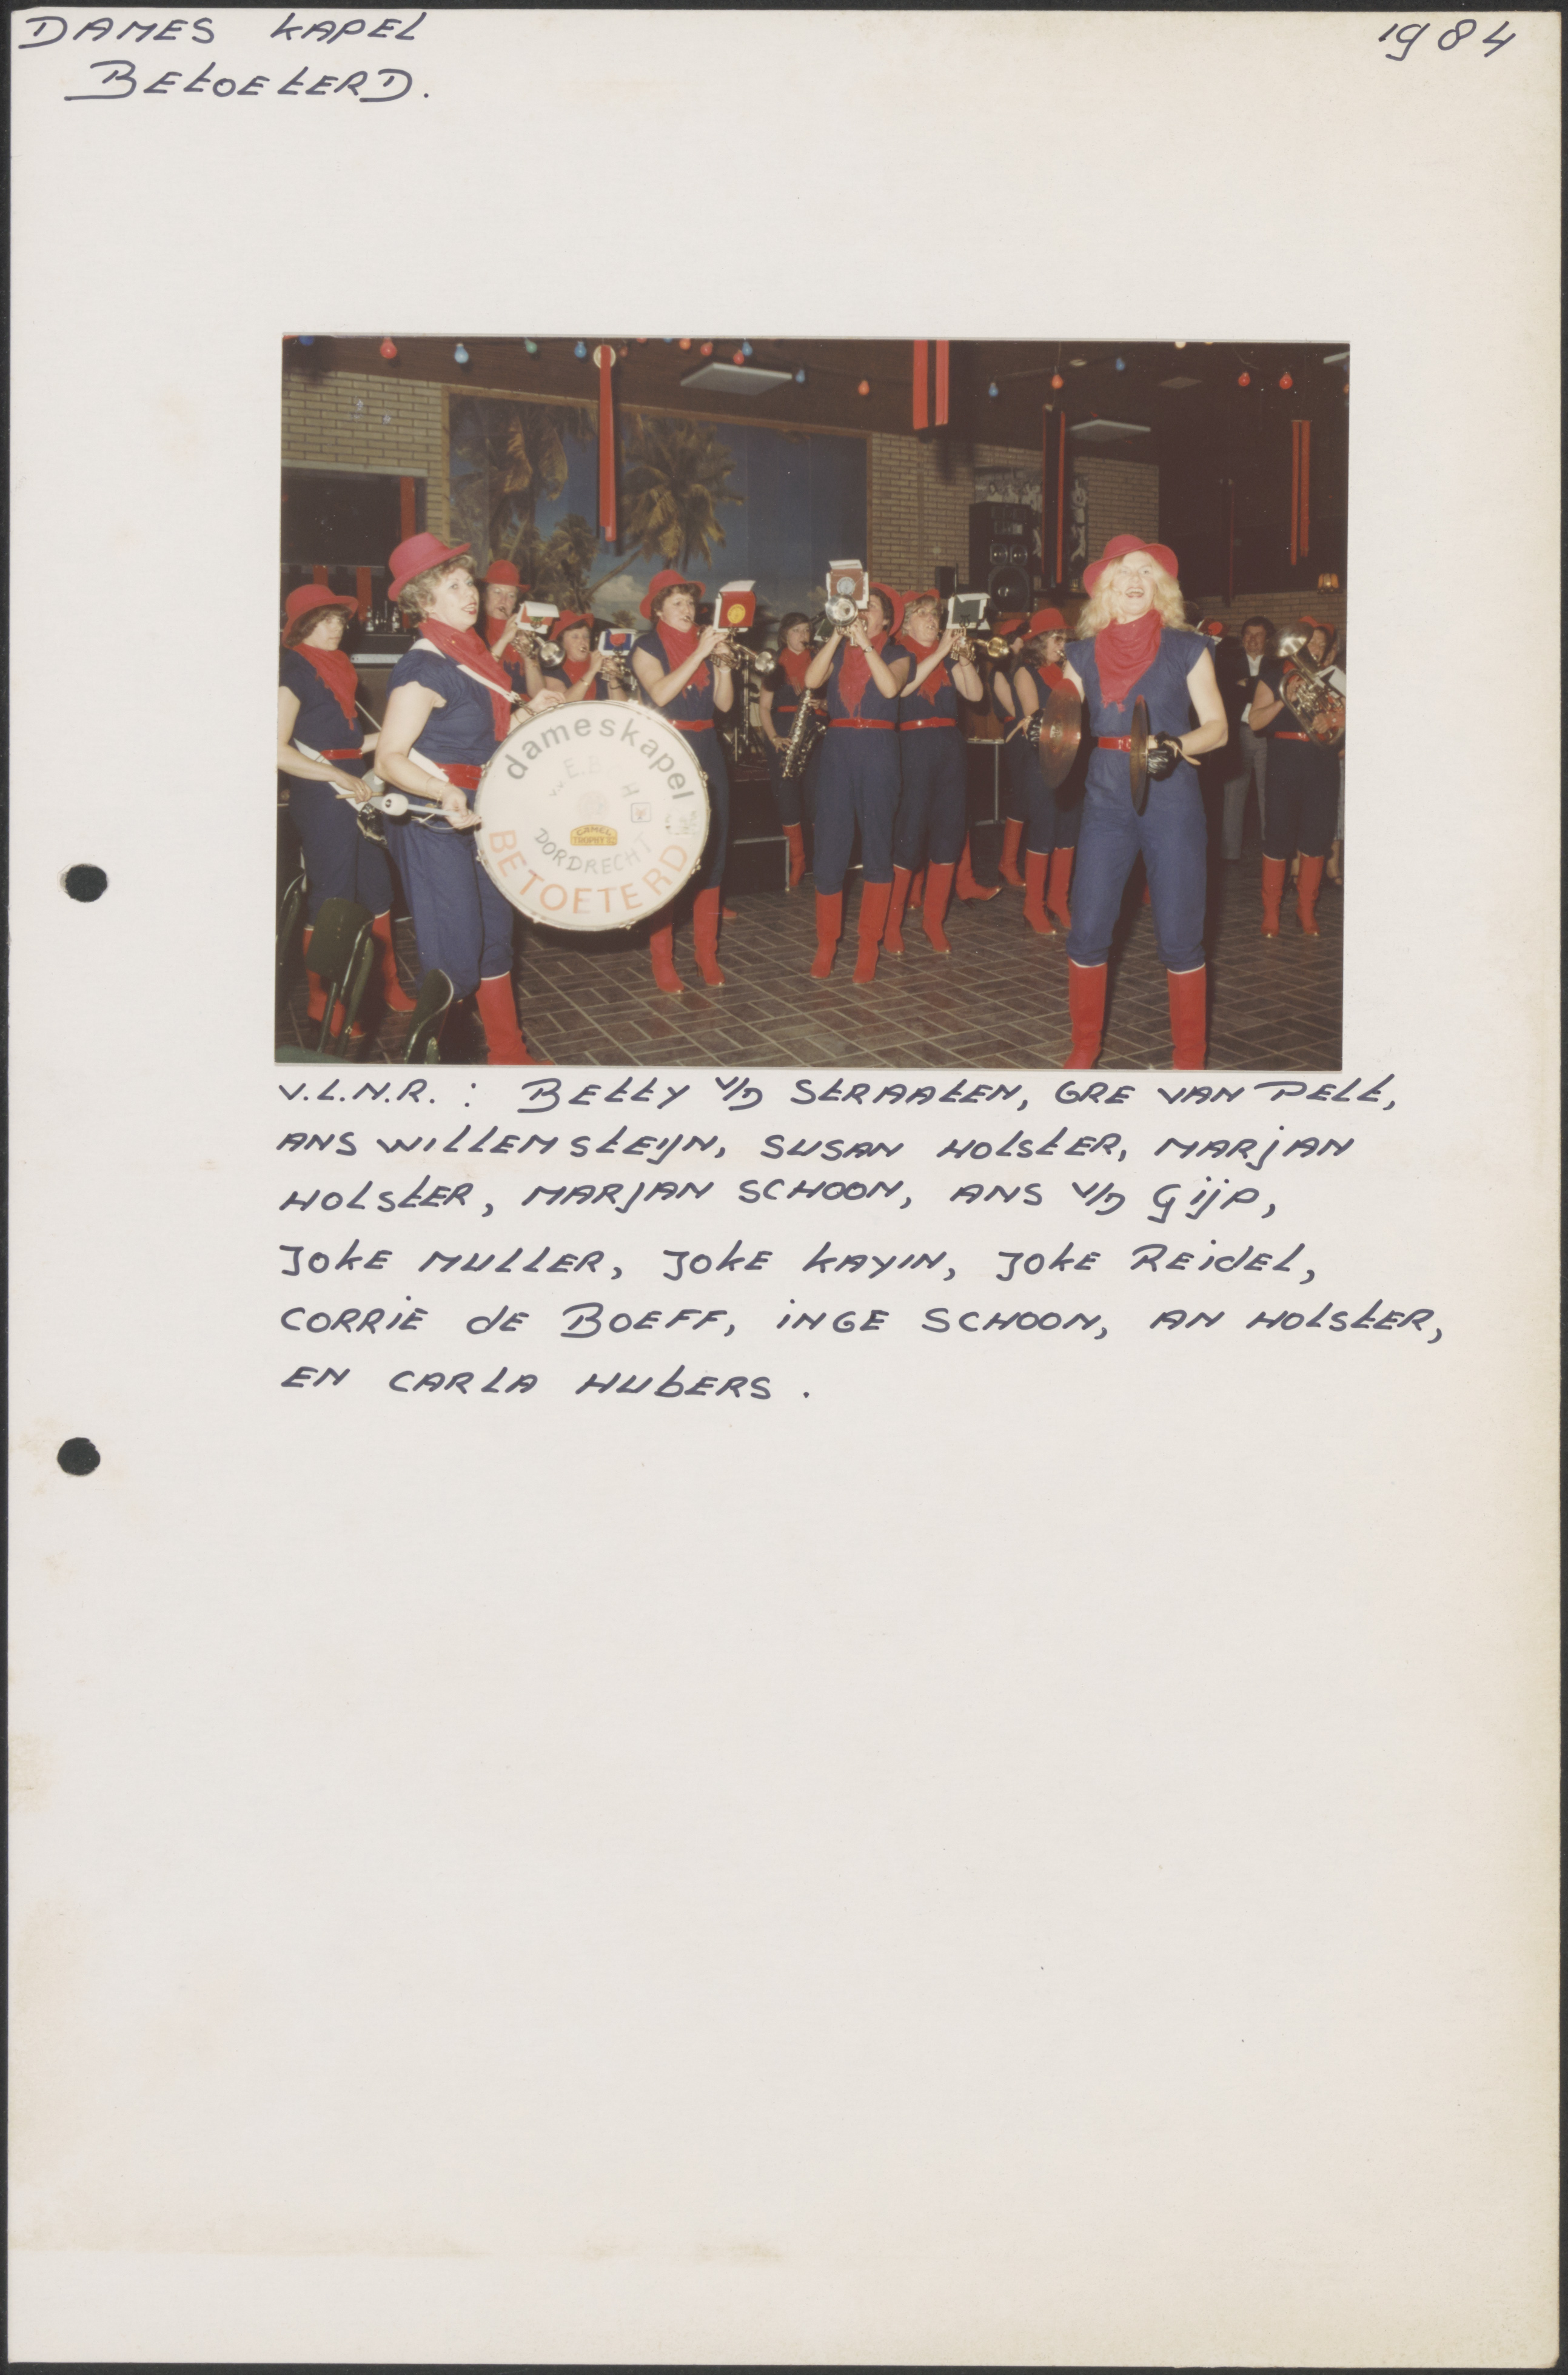 DAMES KAPEL
BEtOEtERD.
1984
dameskapel
v.v. E.B.O.H
CAMEL
TROPHY
DORDRECHT
BETOETERD
V.L.N.R. : BEttY v/D StRAAtEN, GRE VAN PELt,
ANS WILLEMStEIJN, SUSAN HOLStER, MARjAN
HOLStER, MARJAN SCHOON, ANS v/D GijP,
JOkE MULLER, JOkE kAYIN, JOkE REidEL,
CORRiE dE BOEFF, iNGE SCHOON, AN HOLStER,
EN CARLA HUbERS .